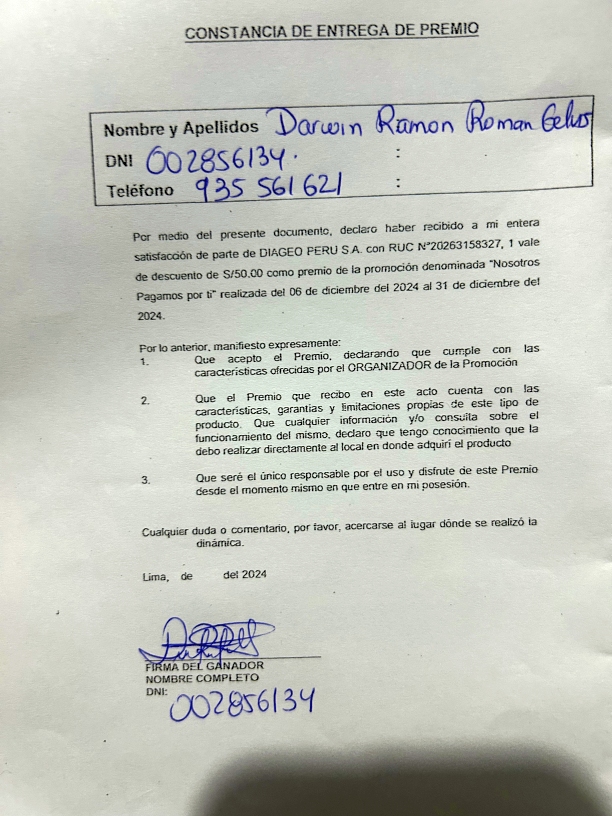 CONSTANCIA DE ENTREGA DE PREMIO
Nombre y Apellidos Darwin Ramon Roman
DNI 002856134. :
Teléfono 935 561 621 :
Por medio del presente documento, declaro haber recibido a mi entera
satisfacción de parte de DIAGEO PERU S.A. con RUC N°20263158327, 1 vale
de descuento de S/50.00 como premio de la promoción denominada "Nosotros
Pagamos por ti" realizada del 06 de diciembre del 2024 al 31 de diciembre del
2024.
Por lo anterior, manifiesto expresamente:
1. Que acepto el Premio, declarando que cumple con las
características ofrecidas por el ORGANIZADOR de la Promoción
2. Que el Premio que recibo en este acto cuenta con las
características, garantías y limitaciones propias de este tipo de
producto. Que cualquier información y/o consulta sobre el
funcionamiento del mismo, declaro que tengo conocimiento que la
debo realizar directamente al local en donde adquirí el producto
3. Que seré el único responsable por el uso y disfrute de este Premio
desde el momento mismo en que entre en mi posesión.
Cualquier duda o comentario, por favor, acercarse al lugar dónde se realizó la
dinámica.
Lima, de del 2024
FIRMA DEL GANADOR
NOMBRE COMPLETO
DNI:
002856134